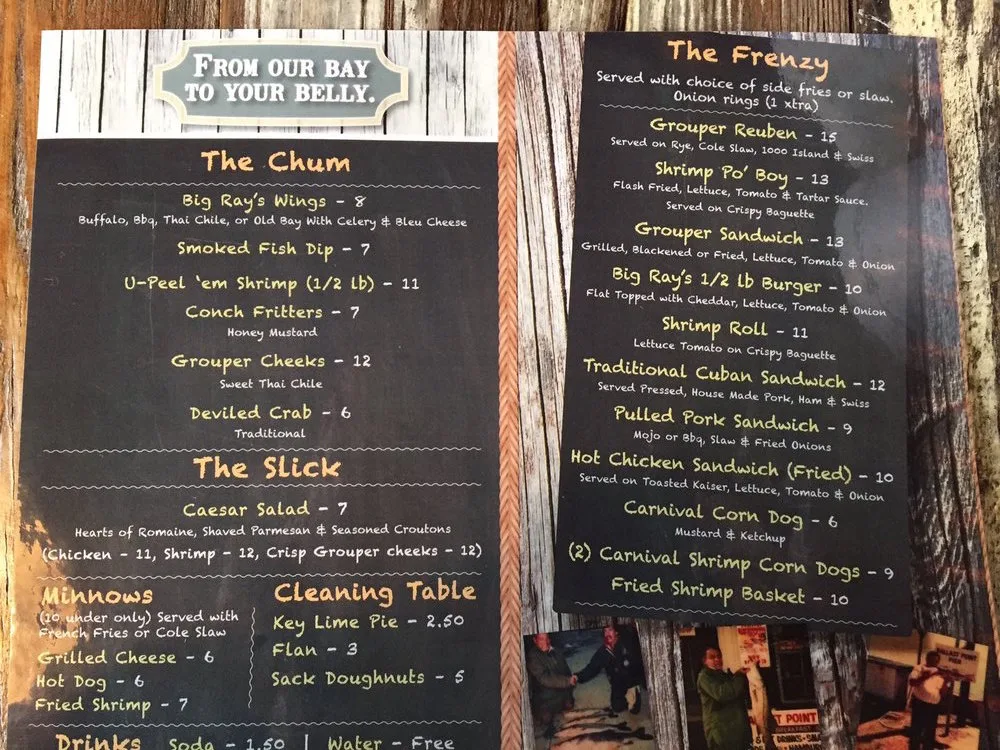 FROM OUR BAY
TO YOUR BELLY.
The Chum
Big Ray's Wings - 8
Buffalo, Bbq, Thai Chile, or Old Bay With Celery & Bleu Cheese
Smoked Fish Dip - 7
U-Peel 'em Shrimp (1/2 lb) - 11
Conch Fritters - 7
Honey Mustard
Grouper Cheeks - 12
Sweet Thai Chile
Deviled Crab - 6
Traditional
The Slick
Caesar Salad - 7
Hearts of Romaine, Shaved Parmesan & Seasoned Croutons
(Chicken - 11, Shrimp - 12, Crisp Grouper cheeks - 12)
Minnows
(10 under only) Served with
French Fries or Cole Slaw
Grilled Cheese - 6
Hot Dog - 6
Fried Shrimp - 7
Cleaning Table
Key Lime Pie - 2.50
Flan - 3
Sack Doughnuts - 5
Drinks Soda - 1.50 | Water - Free
The Frenzy
Served with choice of side fries or slaw.
Onion rings (1 xtra)
Grouper Reuben - 15
Served on Rye, Cole Slaw, 1000 Island & Swiss
Shrimp Po' Boy - 13
Flash Fried, Lettuce, Tomato & Tartar Sauce.
Served on Crispy Baguette
Grouper Sandwich - 13
Grilled, Blackened or Fried, Lettuce, Tomato & Onion
Big Ray's 1/2 lb Burger - 10
Flat Topped with Cheddar, Lettuce, Tomato & Onion
Shrimp Roll - 11
Lettuce Tomato on Crispy Baguette
Traditional Cuban Sandwich - 12
Served Pressed, House Made Pork, Ham & Swiss
Pulled Pork Sandwich - 9
Mojo or Bbq, Slaw & Fried Onions
Hot Chicken Sandwich (Fried) - 10
Served on Toasted Kaiser, Lettuce, Tomato & Onion
Carnival Corn Dog - 6
Mustard & Ketchup
(2) Carnival Shrimp Corn Dogs - 9
Fried Shrimp Basket - 10
BALLAST POINT
PIER
T POINT